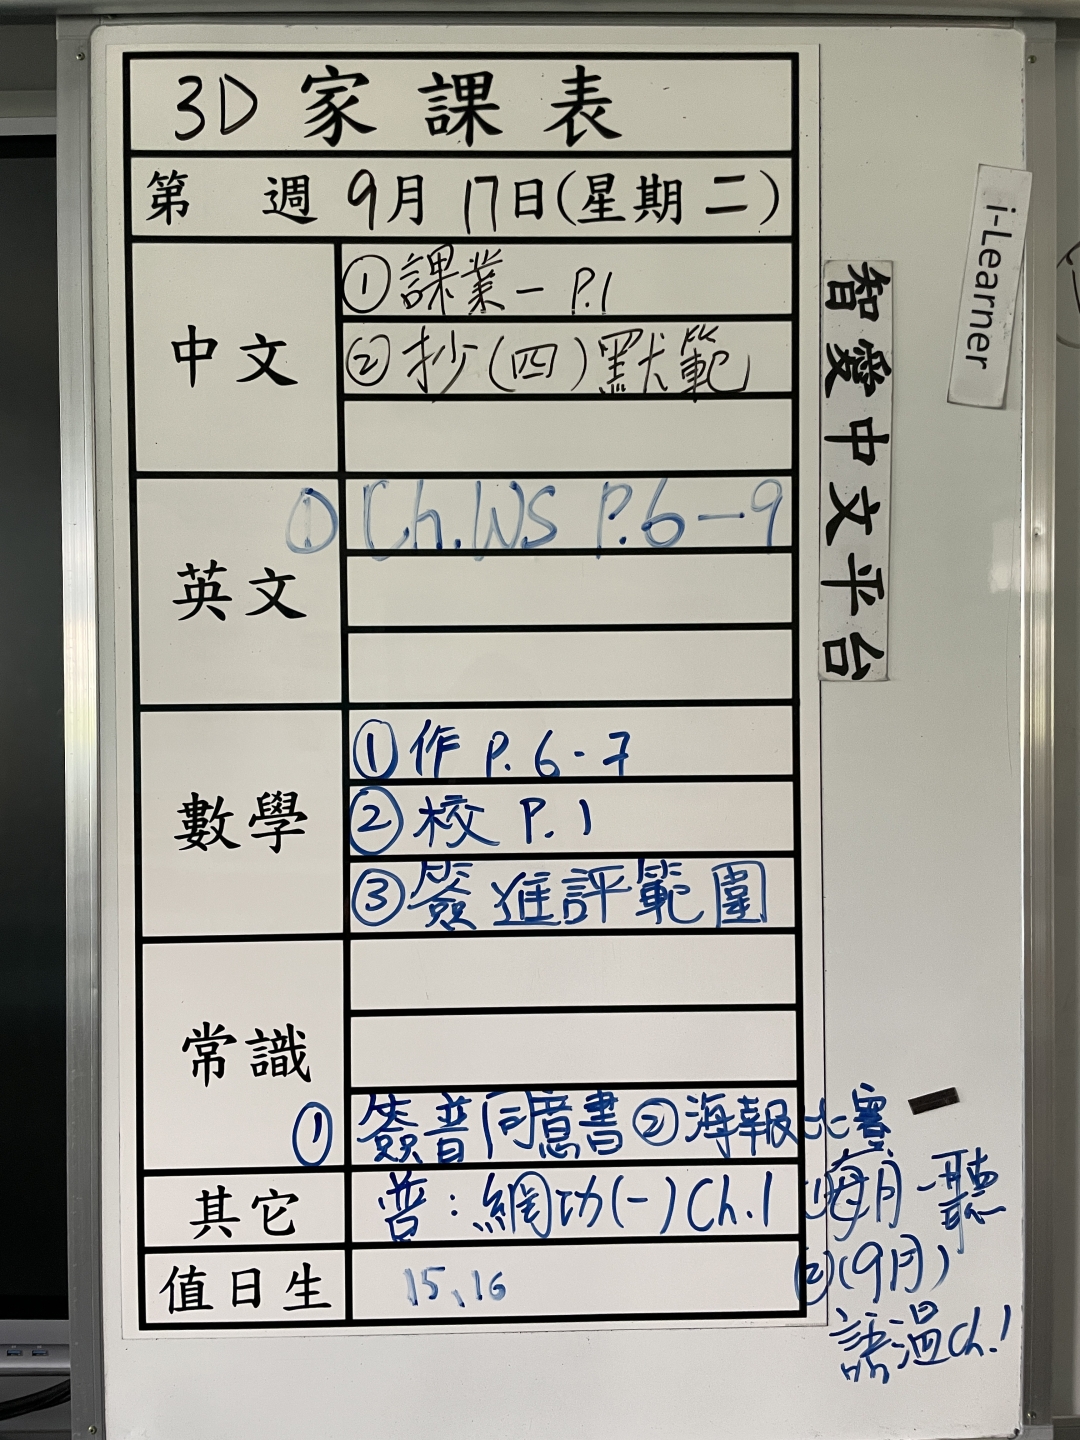 3D 家課表
第 週 9月 17日(星期二)
中文
①課業一 P.1
②抄(四)默範
英文
① Ch.WS P.6-9
數學
①作 P.6-7
②校 P.1
③簽進評範圍
常識
① 簽普同意書②海報比賽
其它
普：網功(一)Ch.1 ①每月一聽
②(9月)
語溫Ch.1
值日生
15、16
智愛中文平台
i-Learner